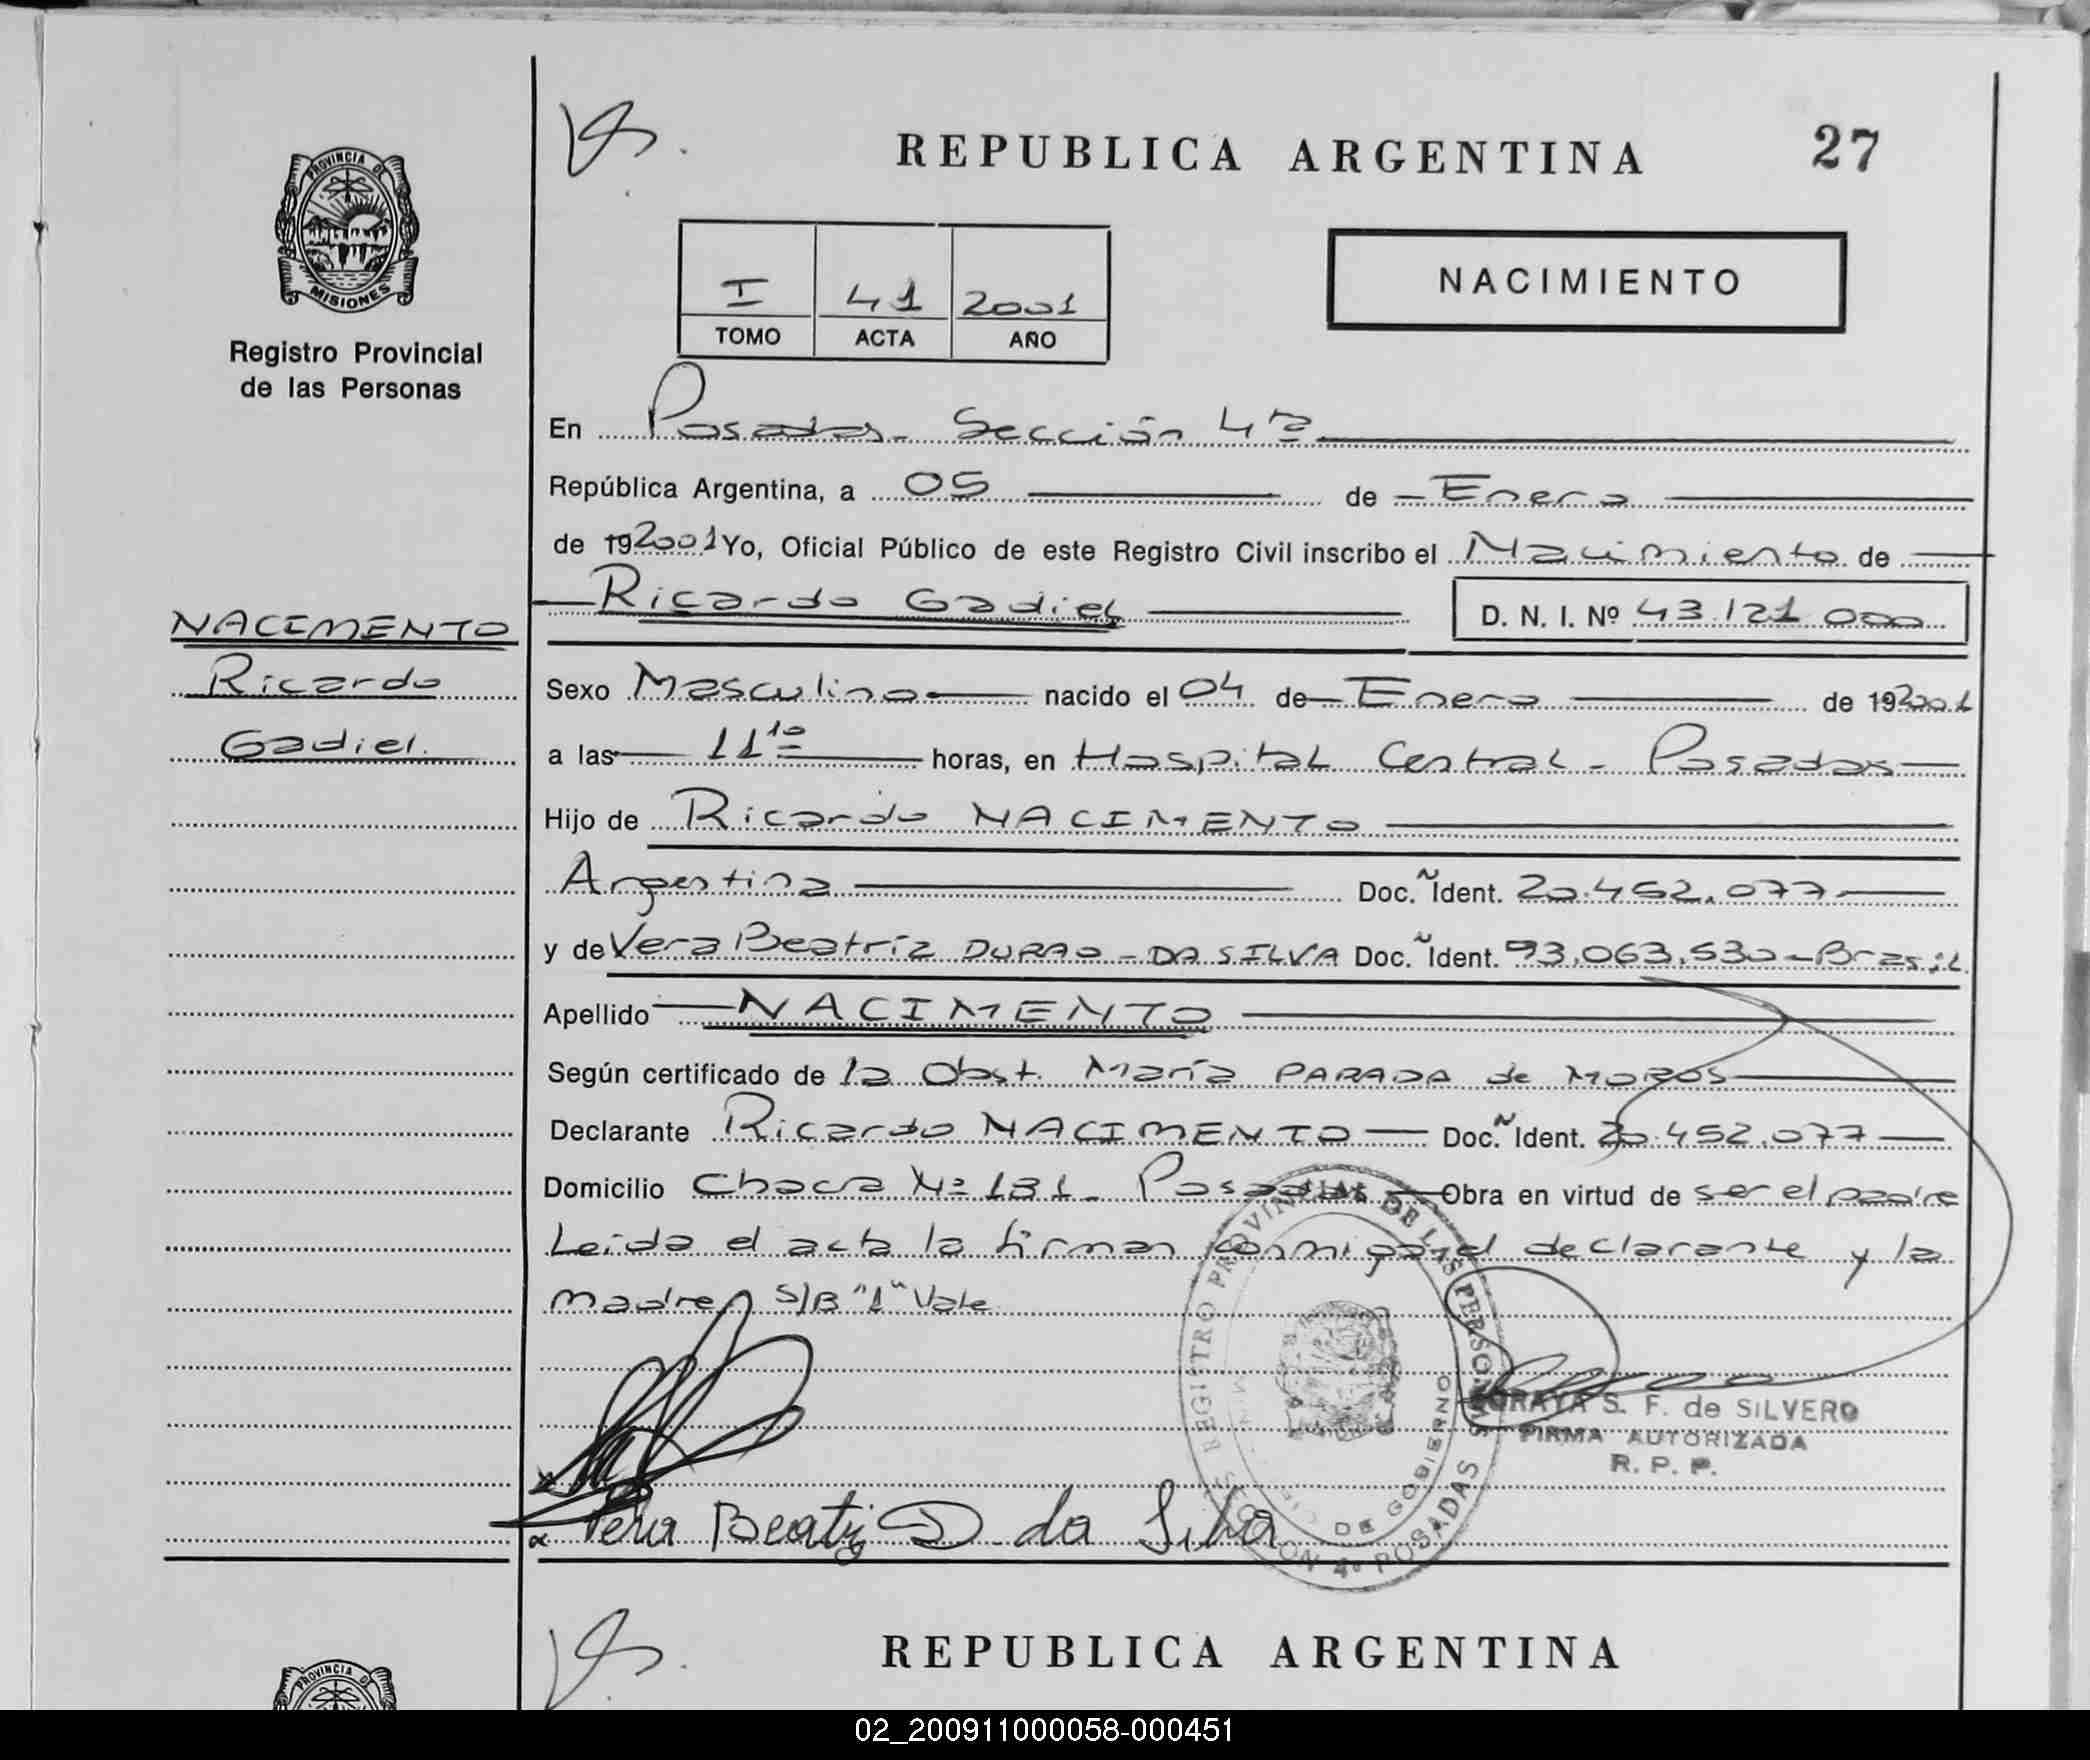 REPUBLICA ARGENTINA
27
PROVINCIA DE
MISIONES
Registro Provincial
de las Personas
I 41 2001
TOMO ACTA AÑO
NACIMIENTO
En Posadas - Sección 4ta
República Argentina, a 05 de Enero
de 19 2001 Yo, Oficial Público de este Registro Civil inscribo el Nacimiento de
Ricardo Gadiel
D. N. I. Nº 43.121.000
NACIMENTO
Ricardo
Gadiel.
Sexo Masculino nacido el 04 de Enero de 19 2001
a las 11 10 horas, en Hospital Central - Posadas
Hijo de Ricardo NACIMENTO
Argentina Doc. Ñ Ident. 20.452.077
y de Vera Beatríz DURAO - DA SILVA Doc. Ñ Ident. 93.063.530 - Brasil
Apellido NACIMENTO
Según certificado de la Obst. María PARADA de MOROS
Declarante Ricardo NACIMENTO Doc. Ñ Ident. 20.452.077
Domicilio Chacra Nº 181 - Posadas Obra en virtud de ser el padre
Leída el acta la firman conmigo el declarante y la
madre S/B "1" Vale
REGISTRO PROVINCIAL DE LAS PERSONAS
DE GOBIERNO
SECCION 4º POSADAS
SORAYA S. F. de SILVERO
FIRMA AUTORIZADA
R. P. P.
Vera Beatriz D da Silva
REPUBLICA ARGENTINA
PROVINCIA DE
02_200911000058-000451